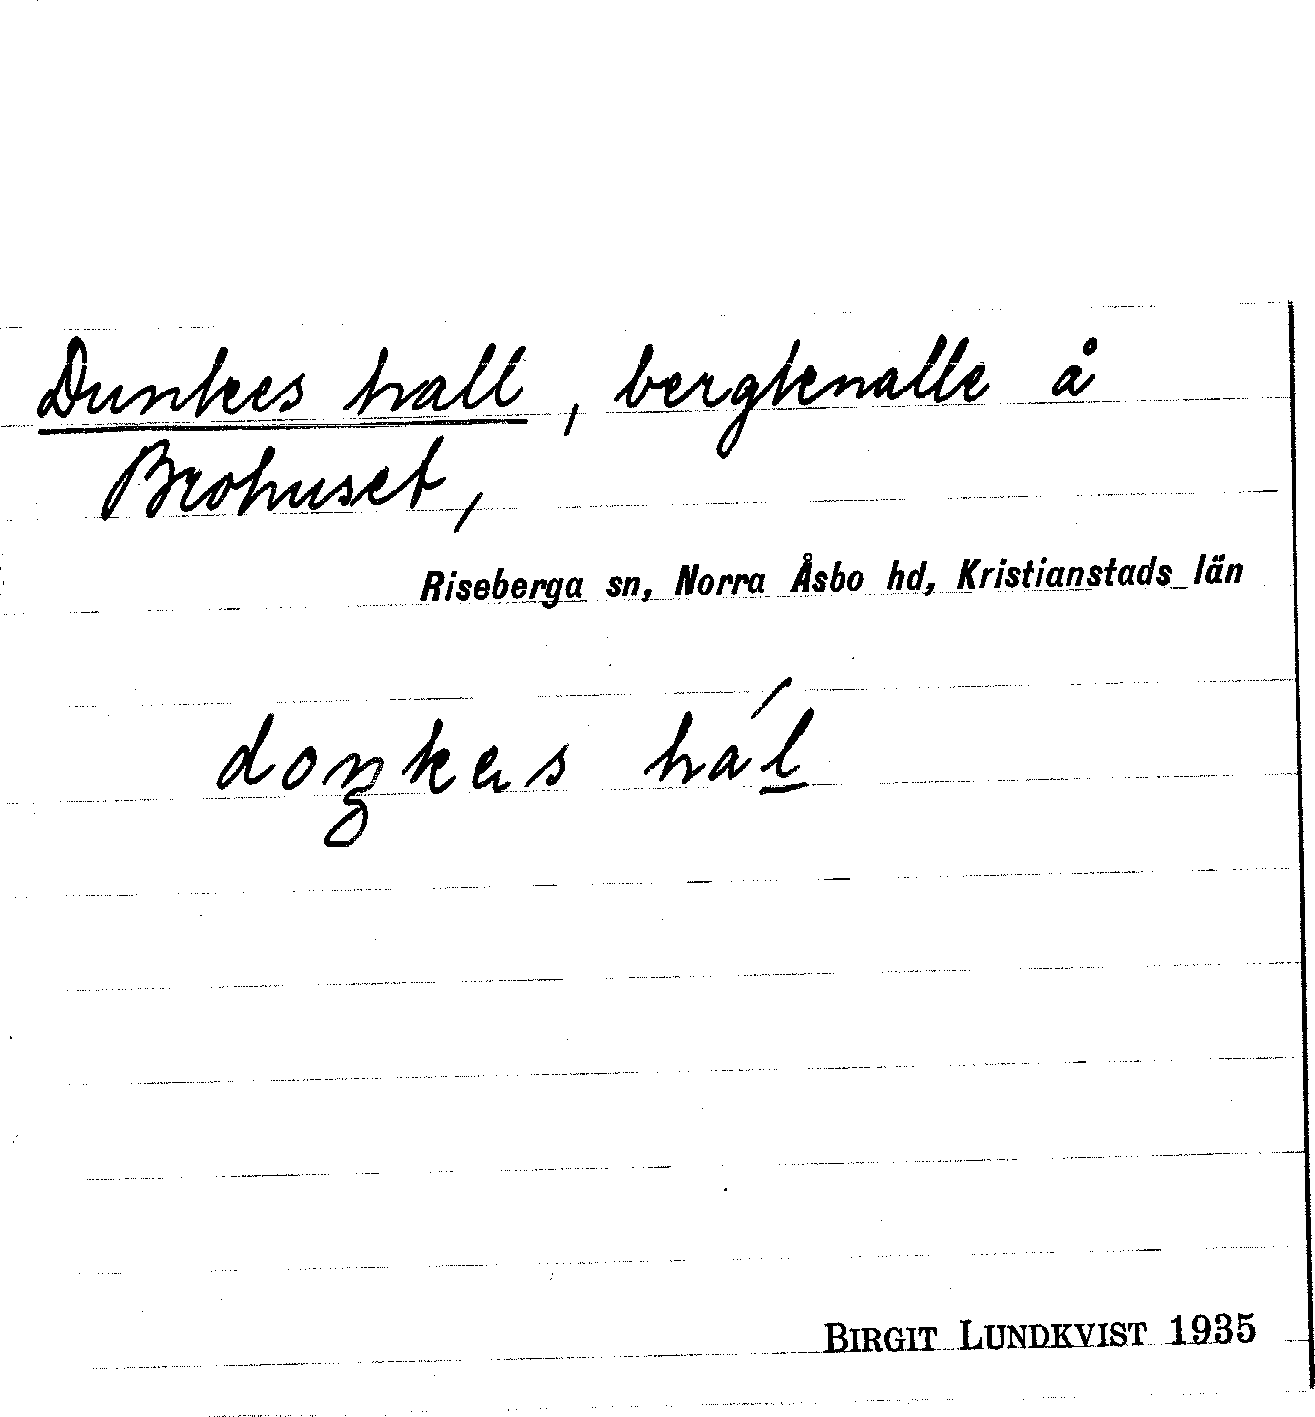 Dunkes hall, bergknalle å
Brohuset,
Riseberga sn, Norra Åsbo hd, Kristianstads län
doŋkəs hál̲
BIRGIT LUNDKVIST 1935